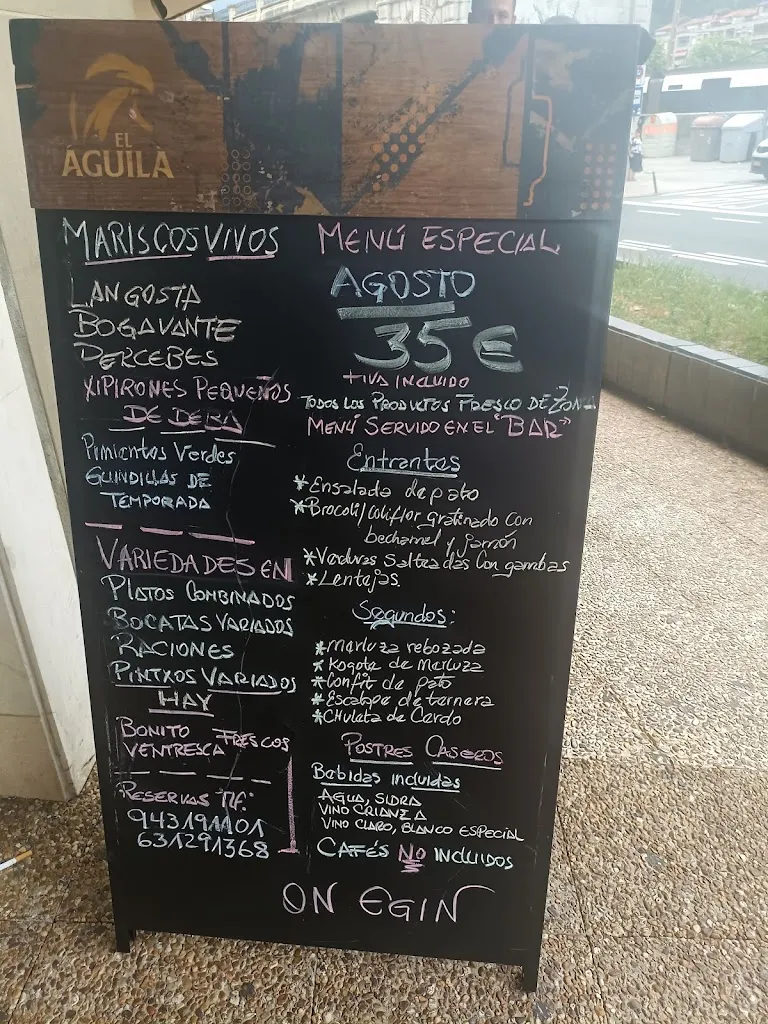 EL
ÁGUILA
MARISCOS VIVOS
LANGOSTA
BOGAVANTE
PERCEBES
XIPIRONES PEQUEÑOS
DE DEBA
Pimientos Verdes
GUINDILLAS DE
TEMPORADA
VARIEDADES EN
PLATOS COMBINADOS
BOCATAS VARIADOS
RACIONES
PINTXOS VARIADOS
HAY
BONITO FRESCOS
VENTRESCA
RESERVAS TLF.
943191101
631291368
MENÚ ESPECIAL
AGOSTO
35€
IVA INCLUIDO
TODOS LOS PRODUCTOS FRESCO DE ZONA
MENÚ SERVIDO EN EL "BAR"
Entrantes
*Ensalada de pato
*Brocoli/coliflor gratinado con
bechamel y jamón
*Verduras Salteadas con gambas
*Lentejas
Segundos:
*Merluza rebozada
*Kogote de Merluza
*Confit de pato
*Escalope de ternera
*Chuleta de Cerdo
POSTRES CASEROS
Bebidas incluidas
AGUA, SIDRA
VINO CRIANZA
VINO CLARO, BLANCO ESPECIAL
CAFÉS NO INCLUIDOS
ON EGIN